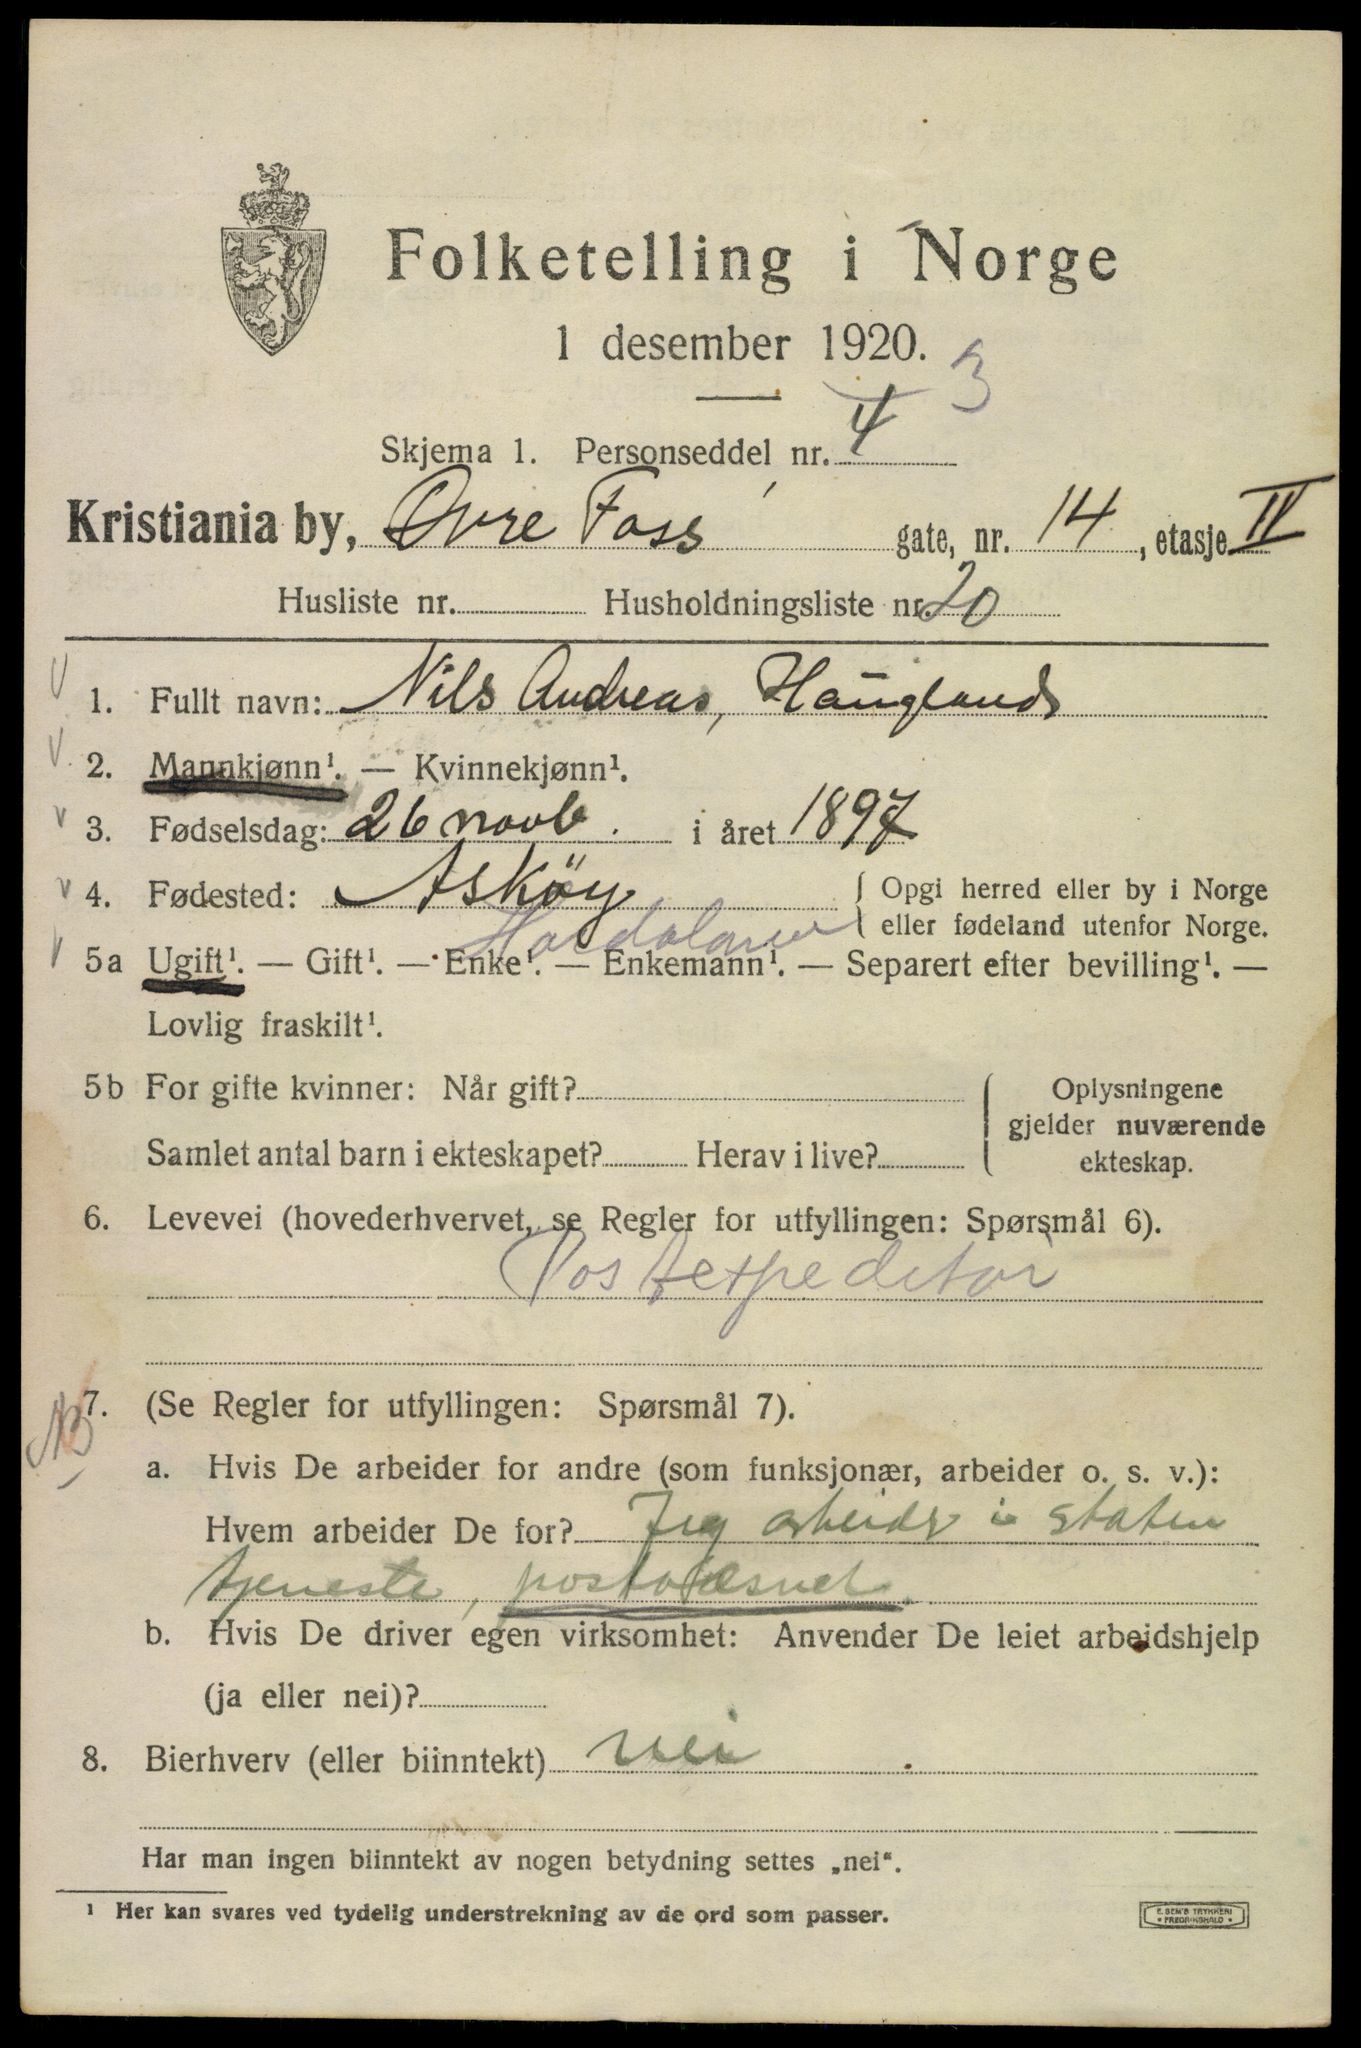 Folketelling i Norge
1 desember 1920.
3
Skjema 1. Personseddel nr. 4
Kristiania by, Øvre Foss gate, nr. 14, etasje IV
Husliste nr. Husholdningsliste nr. 20
1. Fullt navn: Nils Andreas, Haugland
2. Mannkjønn¹. — Kvinnekjønn¹.
3. Fødselsdag: 26 novb. i året 1897
4. Fødested: Asköy { Opgi herred eller by i Norge
eller fødeland utenfor Norge.
Hordaland
5a Ugift¹. — Gift¹. — Enke¹. — Enkemann¹. — Separert efter bevilling¹. —
Lovlig fraskilt¹.
5b For gifte kvinner: Når gift? { Oplysningene
gjelder nuværende
Samlet antal barn i ekteskapet? Herav i live? ekteskap.
6. Levevei (hovederhvervet, se Regler for utfyllingen: Spørsmål 6).
Postexpeditør
NB
7. (Se Regler for utfyllingen: Spørsmål 7).
a. Hvis De arbeider for andre (som funksjonær, arbeider o. s. v.):
Hvem arbeider De for? Jeg arbeider i staten
tjeneste, postvæsnet.
b. Hvis De driver egen virksomhet: Anvender De leiet arbeidshjelp
(ja eller nei)?
8. Bierhverv (eller biinntekt) nei
Har man ingen biinntekt av nogen betydning settes „nei“.
¹ Her kan svares ved tydelig understrekning av de ord som passer.
E. SEM'S TRYKKERI
• FREDRIKSHALD •